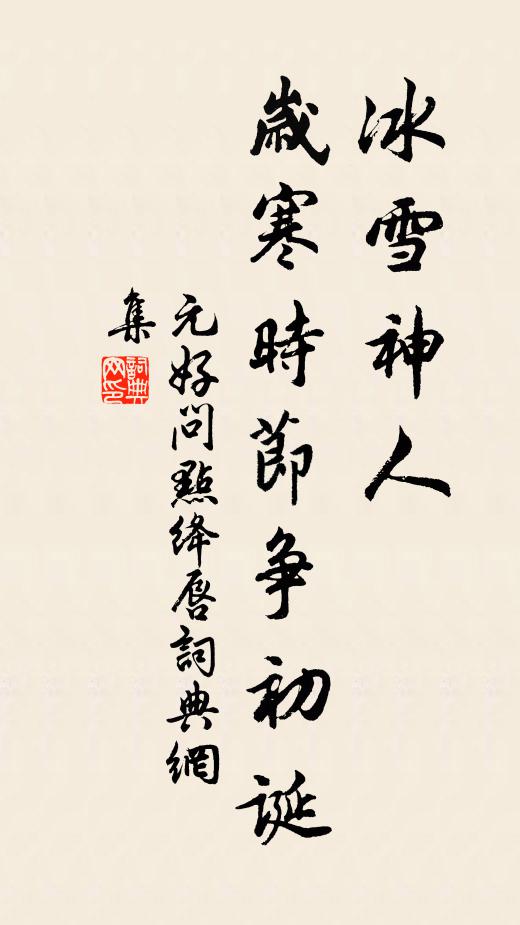 冰雪神人
歲寒時節争初誕
元好问點絳唇詞典網
集
詞典
网印